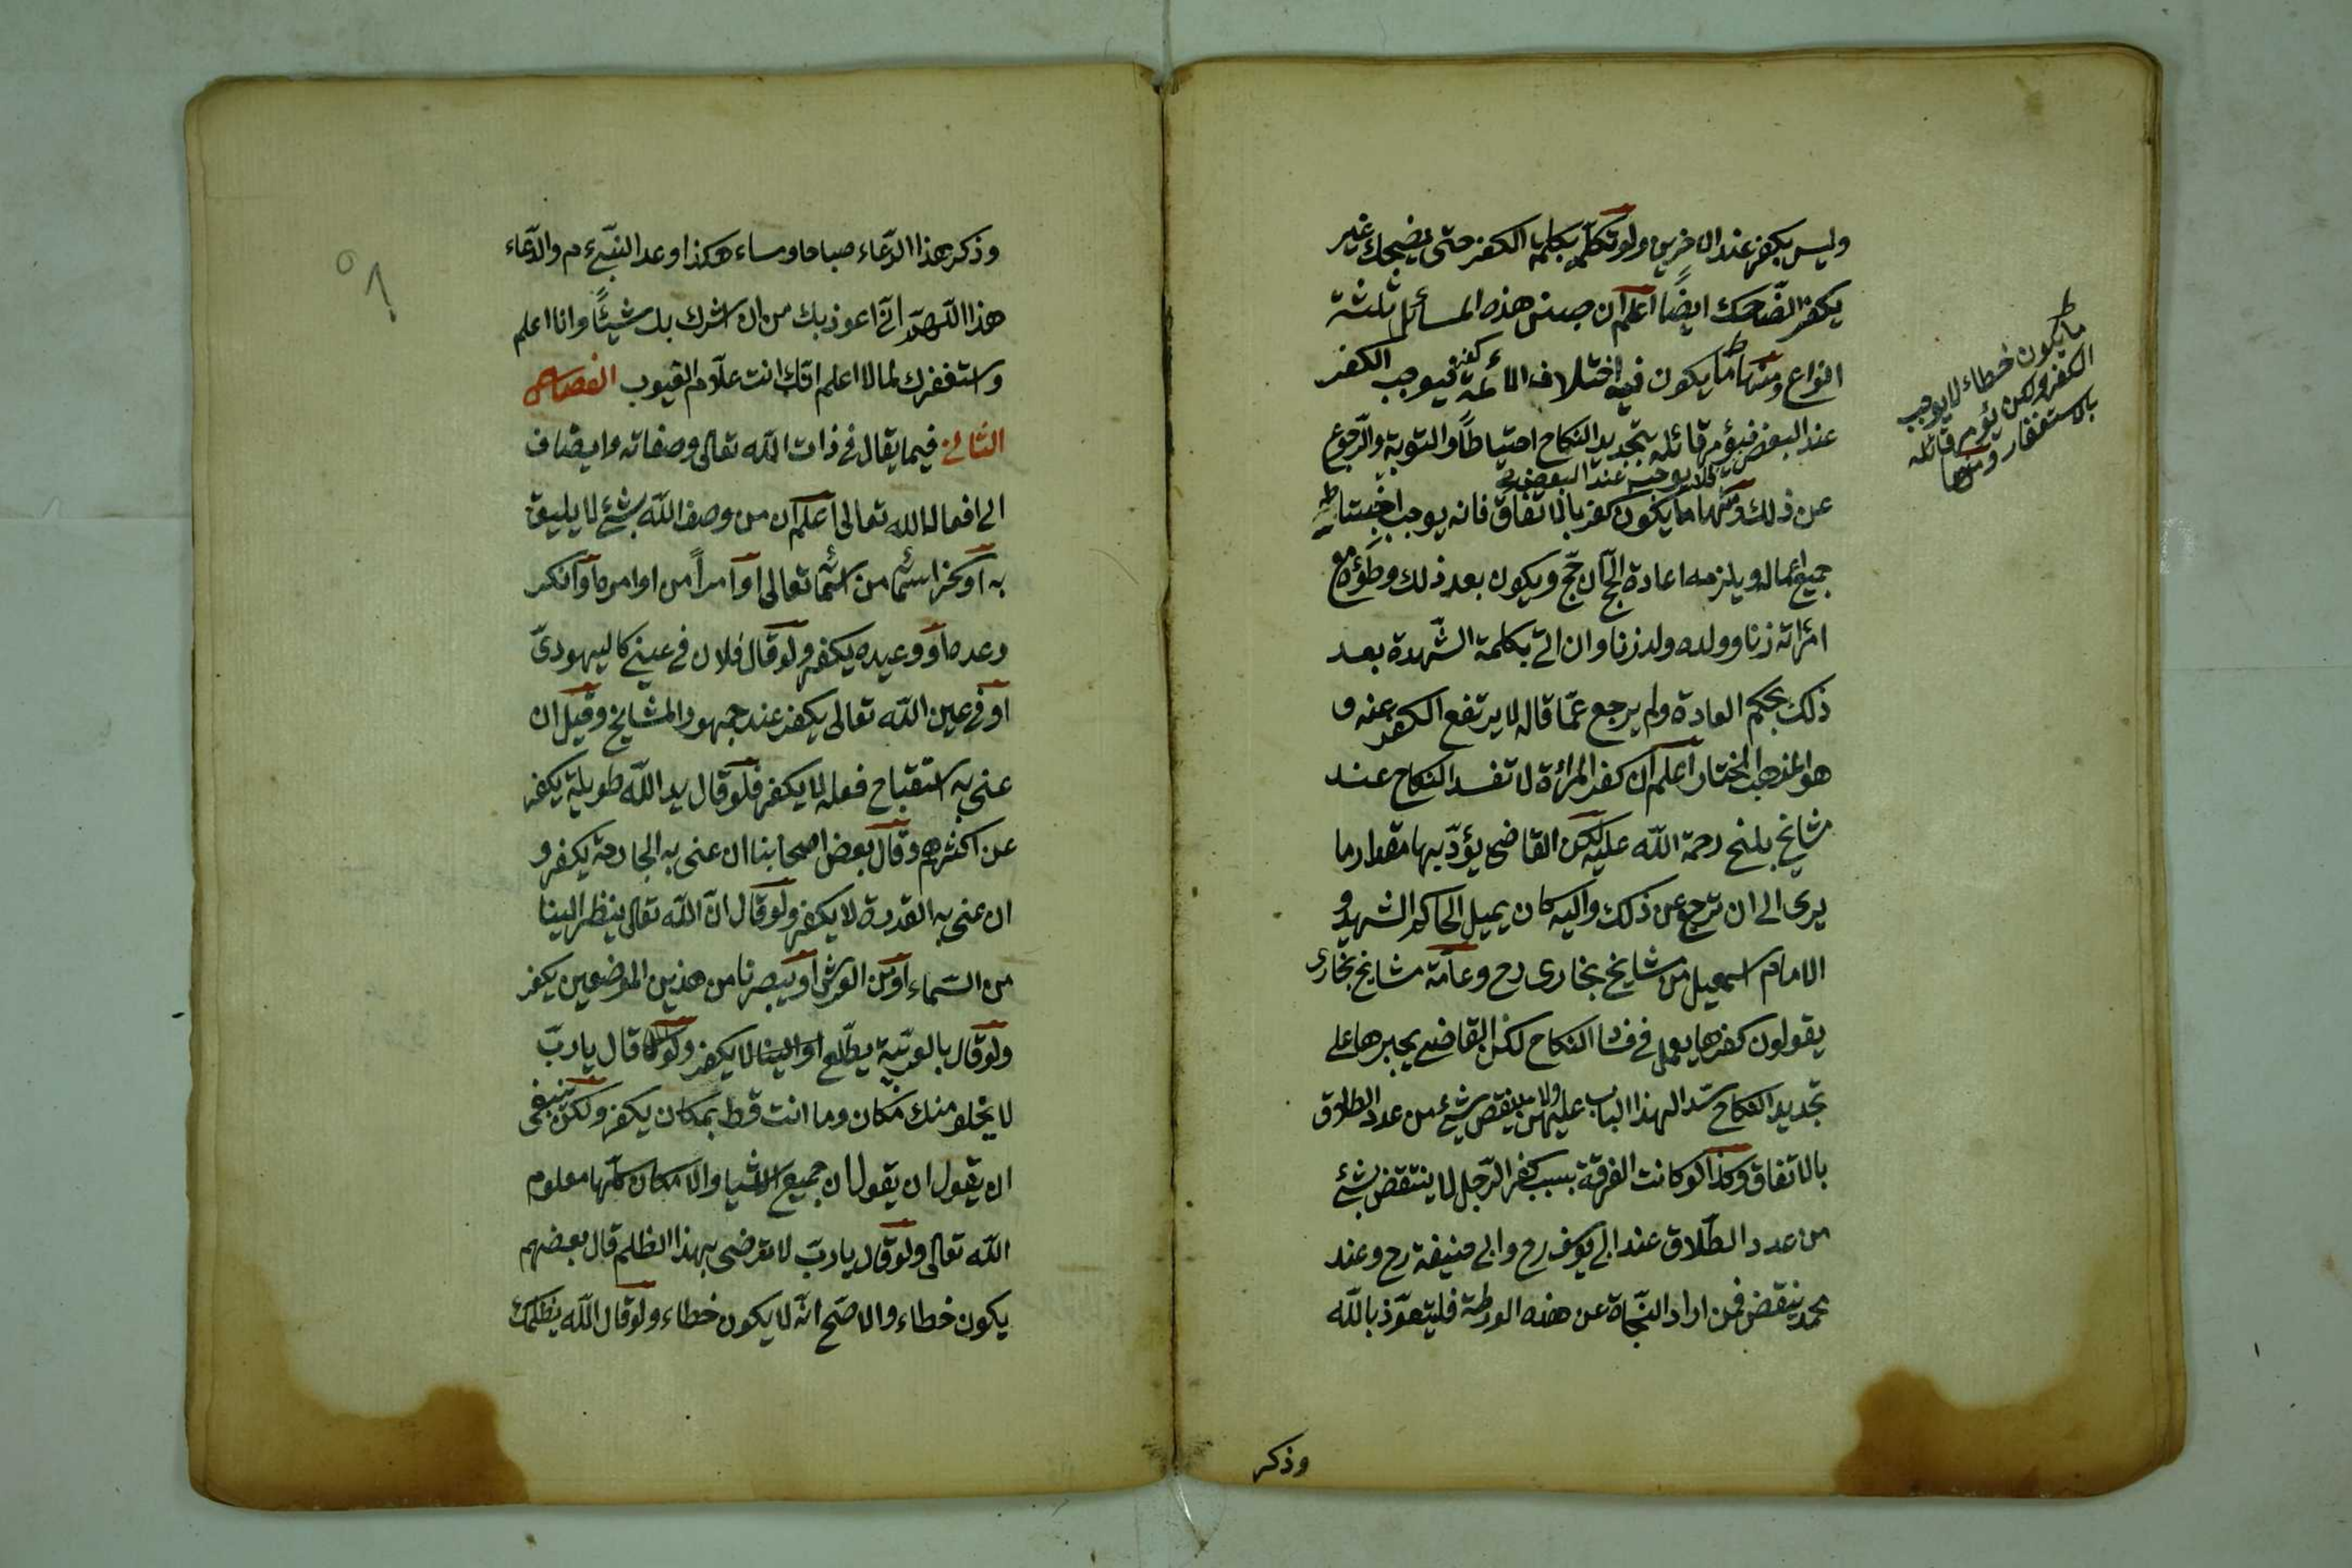 وليس بكفر عند الاخرين ولو تكلم بكلمة الكفر حتى يضحك غير
يكفر الضّاحك ايضًا اعلم ان جنس هذه المسائل ثلثة
انواع ومنها ما يكون فيه اختلاف الائمة فيوجب الكفر
عند البعض فيؤمر قائله بتجديد النكاح احتياطاً والتوبة والرّجوع
فلا يوجب عند البعض
عن ذلك ومنها ما يكون كفر بالاتفاق فانه يوجب
جميع اعماله ويلزمه اعادة الحجّ ان حجّ ويكون بعد ذلك وطؤه مع
امرأته زنا وولده ولد زنا وان اتى بكلمة الشّهدة بعد
ذلك بحكم العادة ولم يرجع عمّا قاله لا يرتفع الكفر عنه و
هو المذهب المختار اعلم ان كفر المرأة لا تفسد النكاح عند
مشايخ بلخ رحمة اللّه عليه لكن القاضى يؤدّبها مقدار ما
يرى الى ان ترجع عن ذلك واليه كان يميل الحاكم الشهيد و
الامام اسمعيل من مشايخ بخارى رح وعامّة مشايخ بخارى
يقولون كفرها يعمل فى فساد النكاح لكن القاضى يجبرها على
تجديد النكاح سدّا لهذا الباب عليهن ولا ينقص شئ من عدد الطلاق
بالاتفاق وكذا لو كانت الفرقة بسبب كفر الرّجل لا ينتقض شئ
من عدد الطّلاق عند ابى يوسف رح وابى حنيفة رح وعند
محمد ينقض فمن اراد النّجاة عن هذه الورطة فليتعوّذ باللّه
وذكر
ما يكون خطاء لا يوجب
الكفر ولكن يؤمر قائله
بالاستغفار ومنها
وذكر هذا الدّعاء صباحا ومساء هكذا وعد النّبىّ عم والدّعاء
هذا اللّهمّ انّى اعوذ بك من ان اشرك بك شيئًا وانا اعلم
واستغفرك لما لا اعلم انّك انت علّام الغيوب الفصل
الثانى فيما يقال فى ذات اللّه تعالى وصفاته وايضاف
الى افعال الله تعالى اعلم ان من وصف اللّه بشئ لا يليق
به او سخر اسمًا من اسمائه تعالى او امراً من اوامره او انكر
وعده او وعيده يكفر ولو قال فلان فى عينى كاليهودىّ
او فى عين اللّه تعالى يكفر عند جمهور المشايخ وقيل ان
عنى به استقباح فعله لا يكفر فلو قال يد اللّه طويلة يكفر
عن اكثرهم وقال بعض اصحابنا ان عنى به الجارحة يكفر و
ان عنى به القدرة لا يكفر ولو قال انّ اللّه تعالى ينظر الينا
من السّماء او من العرش او يبصرنا من هذين الموضعين يكفر
ولو قال بالعربيّة يطّلع او الينا لا يكفر ولو قال يا ربّ
لا يخلو منك مكان وما انت قط بمكان يكفر ولكن ينبغى
ان يقول ان يقول ان جميع الاشيا والامكان كلّها معلوم
اللّه تعالى ولو قال يا ربّ لا ترضى بهذا الظلم قال بعضهم
يكون خطاء والاصحّ انّه لا يكون خطاء ولو قال اللّه يظلمك